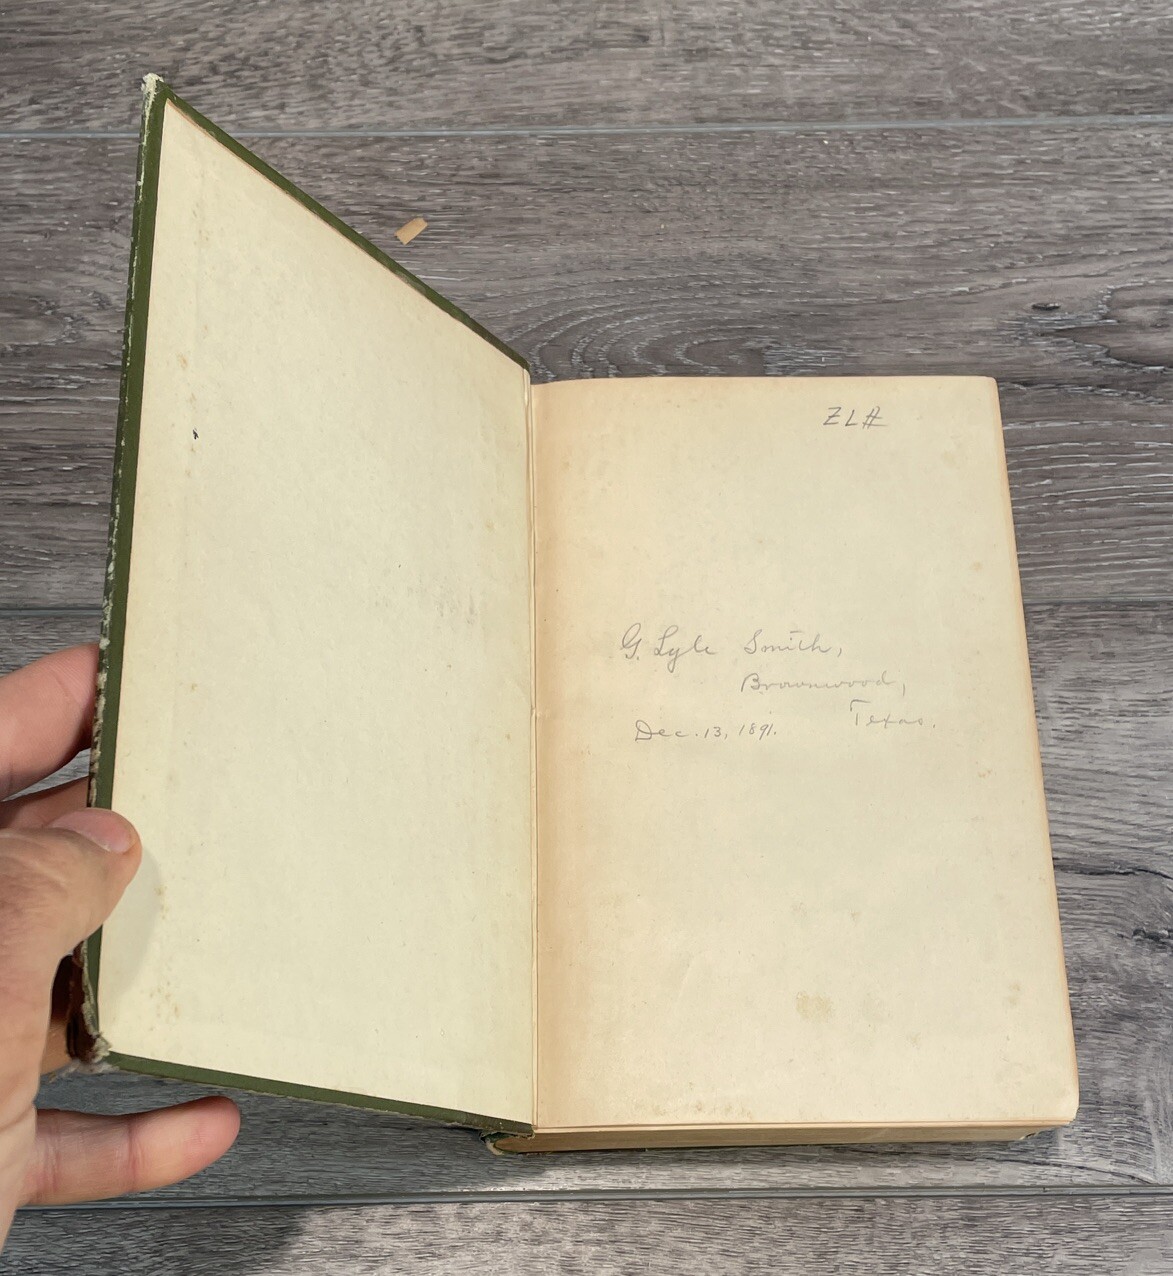 G. Lyle Smith,
Brownwood,
Texas.
Dec. 13, 1891.